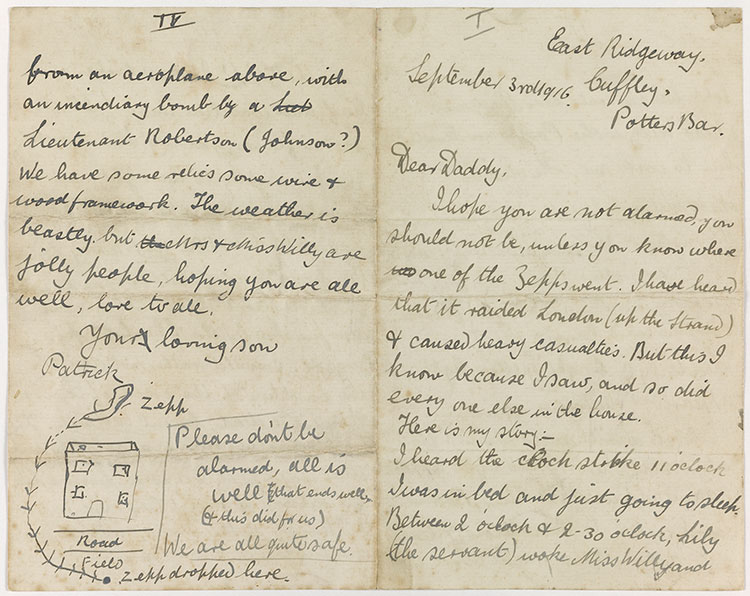 IV
from an aeroplane above, with
an incendiary bomb by a
Lieutenant Robertson (Johnson?)
We have some relics some wire &
wood framework. The weather is
beastly. but the Mrs & Miss Willy are
jolly people, hoping you are all
well, love to all.
Your loving son
Patrick
Zepp
Please don't be
alarmed, all is
well (that ends well
(& this did for us)
We are all quite safe.
Road
Field
Zepp dropped here.
I
East Ridgeway,
September 3rd 1916. Cuffley,
Potters Bar.
Dear Daddy,
I hope you are not alarmed, you
should not be, unless you know where
one of the Zepps went. I have heard
that it raided London (up the Strand)
& caused heavy casualties. But this I
know because I saw, and so did
every one else in the house.
Here is my story:-
I heard the clock strike 11 o'clock
I was in bed and just going to sleep.
Between 2 o'clock & 2-30 o'clock, Lily
(the servant) woke Miss Willy and